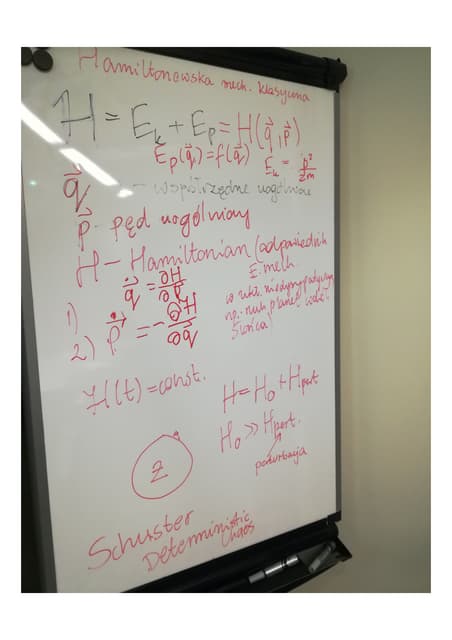 Hamiltonowska mech. klasyczna
H = E_k + E_p = H(q⃗, p⃗)
E_p(q⃗) = f(q⃗) E_k = p²/2m
q⃗ - współrzędne uogólnione
p⃗ - pęd uogólniony
H - Hamiltonian (odpowiednik
E. mech
w ukł. niedyssypatywnym
np. ruch planet wokół
Słońca)
1) q̇⃗ = ∂H/∂p
2) ṗ⃗ = -∂H/∂q
H(t) = const.
H = H₀ + H_pert
H₀ ≫ H_pert.
perturbacja
Z
Schuster
Deterministic
Chaos